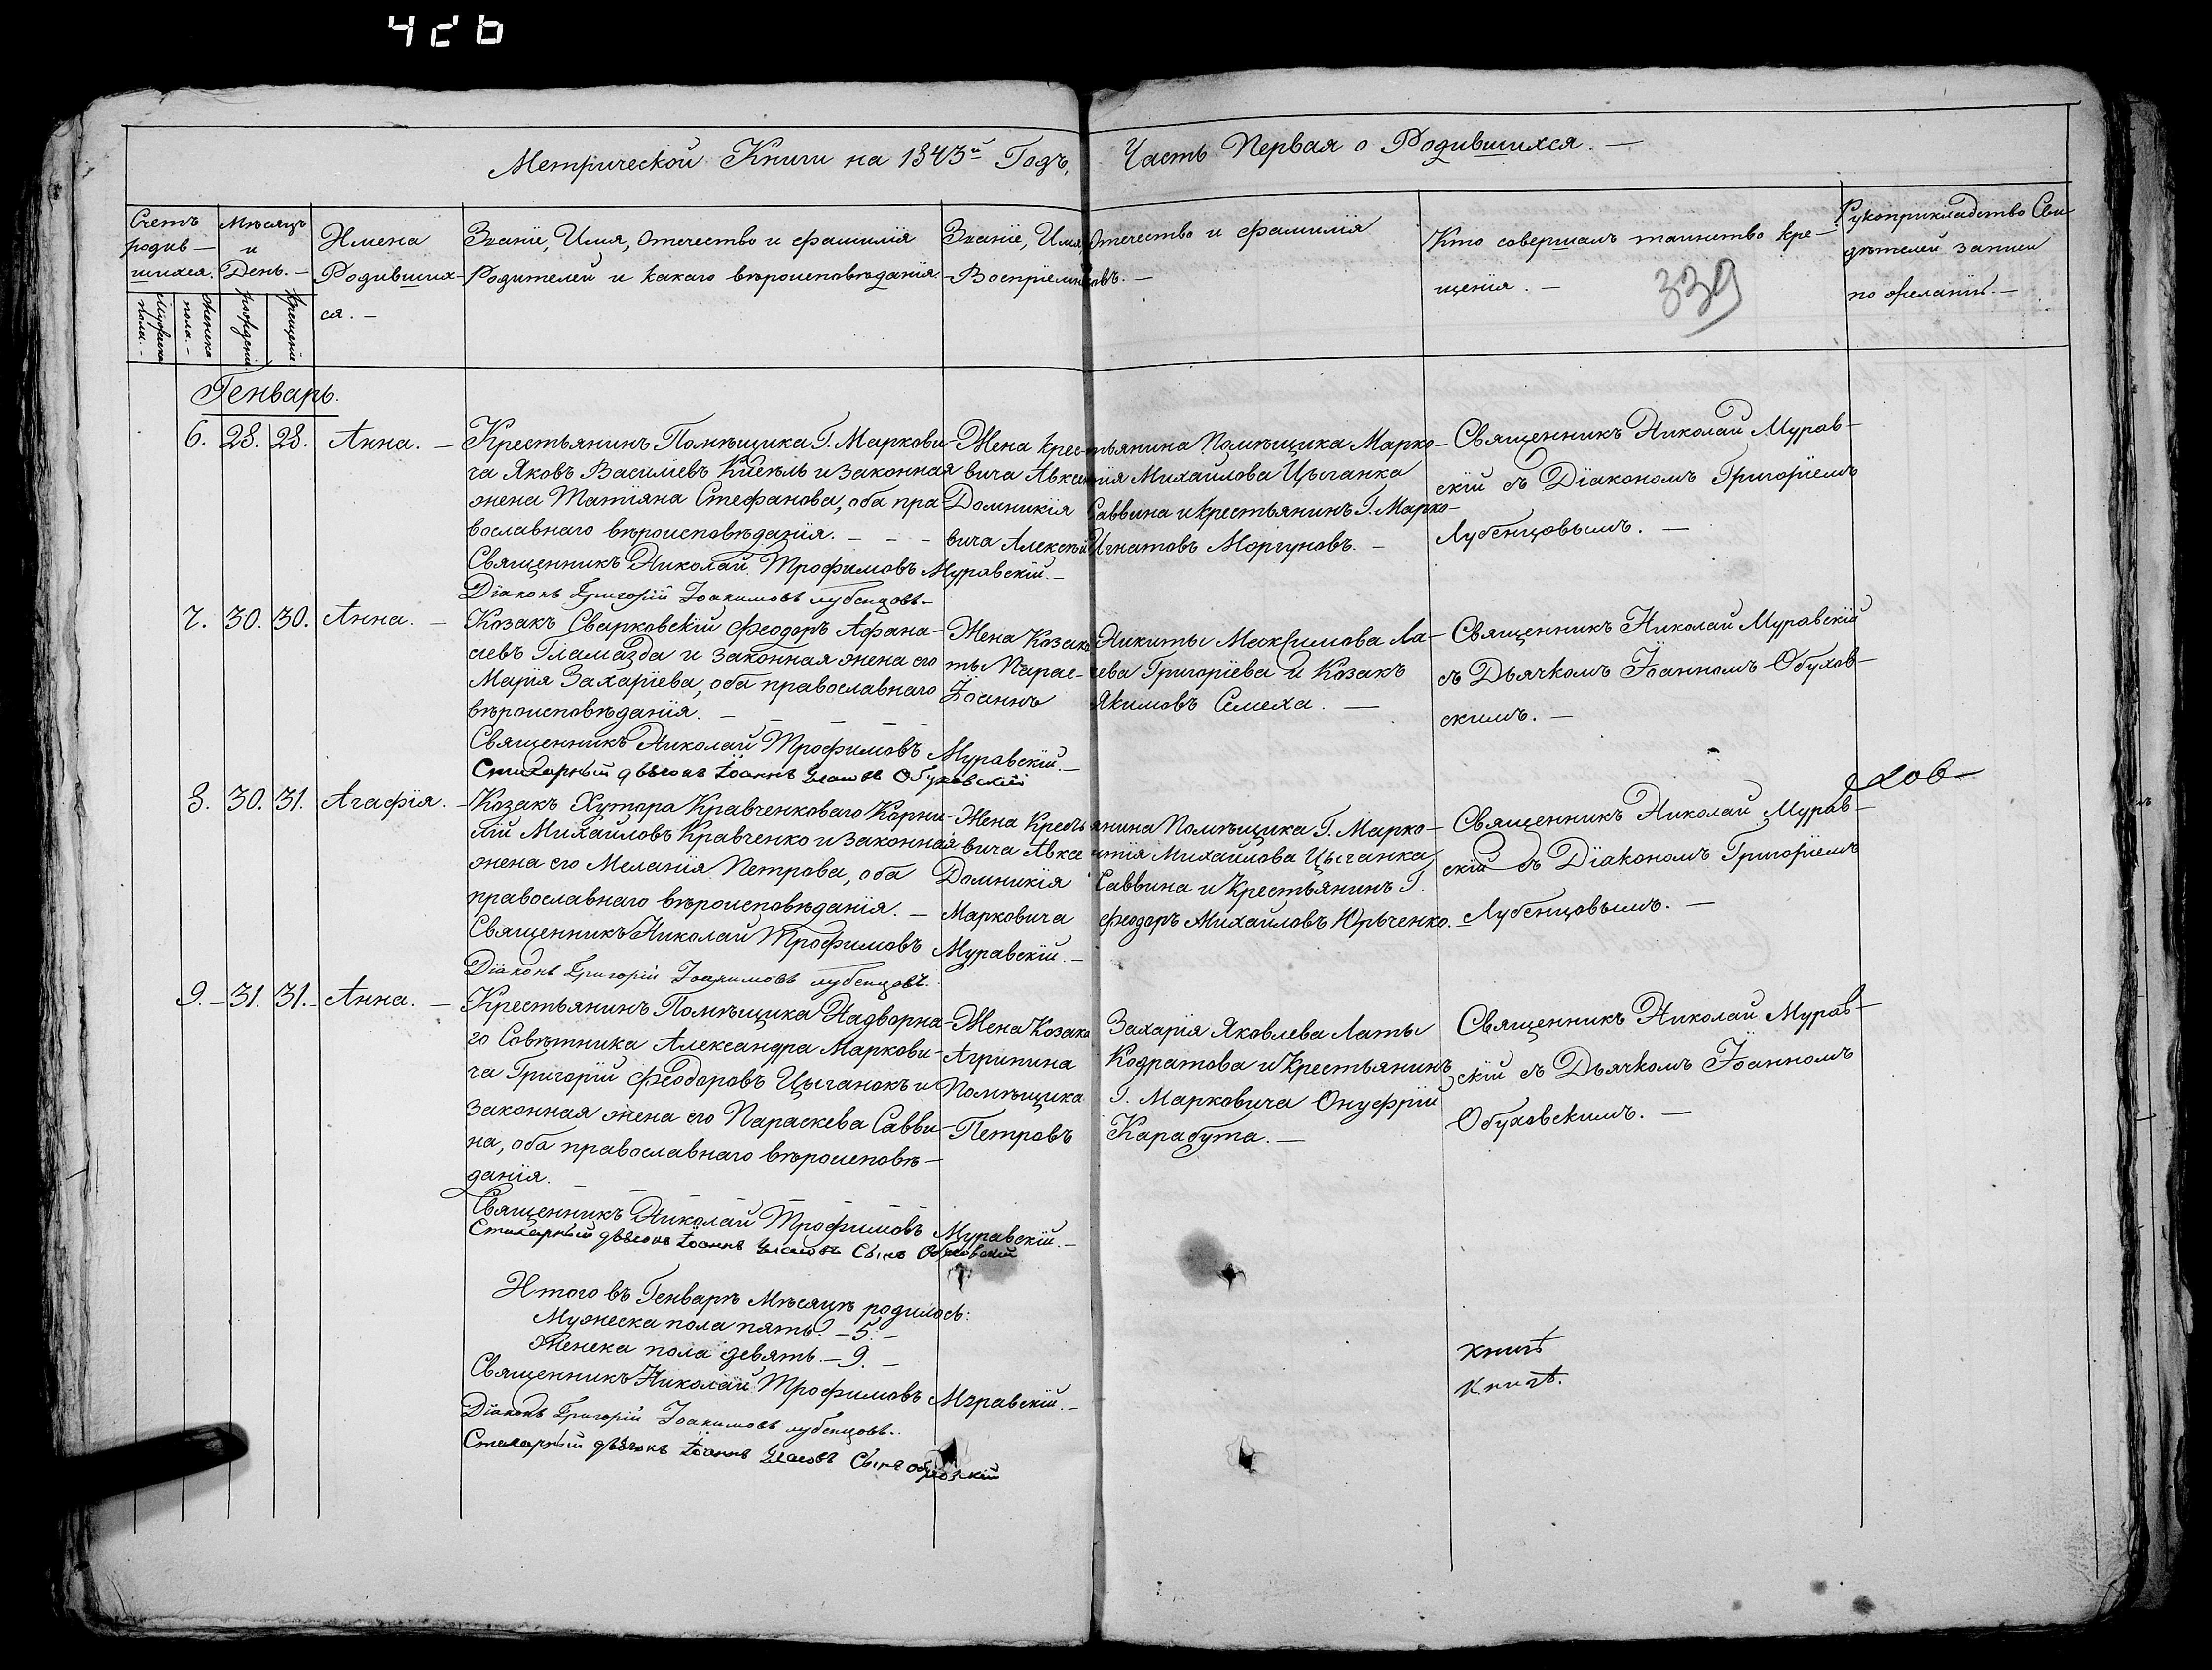 426
Метрической Книги на 1843й Годъ, Часть Первая о Родившихся. —
Счетъ родив-шихся.
Мужеска пола. —
Женска пола. —
Мѣсяцъ и День. —
рожденія
крещенія
Имена Родивших-ся. —
Званіе, Имя, Отечество и фамилія
Родителей и какаго вѣроисповѣданія
Званіе, Имя, Отечество и фамилія
Воспріемниковъ. —
Кто совершалъ таинство кре-
щенія. —
339
Рукоприкладство Сви-
дѣтелей записи
по желанію. —
Генварь.
6. 28. 28. Анна. —
Крестьянинъ Помѣщика Г. Маркови-
ча Яковъ Василіевъ и законная
жена Татіяна Стефанова, оба пра-
вославнаго вѣроисповѣданія. —
Священникъ Николай Трофимовъ Муравскій. —
Діаконъ Григорій Іоакимовъ Лубенцовъ —
Жена крестьянина Помѣщика Марко-
вича Авксентія Михайлова Цыганка
Домникія Саввина и крестьянинъ Г. Марко-
вича Алексѣй Игнатовъ Моргуновъ. —
Священникъ Николай Мурав-
скій съ Діакономъ Григоріемъ
Лубенцовымъ. —
7. 30. 30. Анна. —
Козакъ Сварковскій Феодоръ Афана-
сіевъ Гламазда и законная жена его
Марія Захаріева, оба православнаго
вѣроисповѣданія. —
Священникъ Николай Трофимовъ Муравскій. —
Стихарный дьячокъ Іоаннъ Обуховскій
Жена Козака Никиты Максимова Ла-
ты Параскева Григоріева и Козакъ
Іоаннъ Якимовъ Симеха. —
Священникъ Николай Муравскій
съ Дьячкомъ Іоанномъ Обухов-
скимъ. —
8. 30. 31. Агафія. —
Козакъ Хутора Кравченковаго Корни-
лій Михайловъ Кравченко и законная
жена его Меланія Петрова, оба
православнаго вѣроисповѣданія. —
Священникъ Николай Трофимовъ Муравскій. —
Діаконъ Григорій Іоакимовъ Лубенцовъ.
Жена Крестьянина Помѣщика Г. Марко-
вича Авксентія Михайлова Цыганка,
Домникія Саввина и Крестьянинъ Г.
Марковича Феодоръ Михайловъ Юрьченко. —
Священникъ Николай Мурав-
скій съ Діакономъ Григоріемъ
Лубенцовымъ. —
хов-
9. — 31. 31. — Анна. —
Крестьянинъ Помѣщика Надворна-
го Совѣтника Александра Маркови-
ча Григорій Феодоровъ Цыганокъ и
законная жена его Параскева Савви-
на, оба православнаго вѣроисповѣ-
данія.
Священникъ Николай Трофимовъ Муравскій. —
Стихарный дьячокъ Іоаннъ Сынъ Обуховскій
Жена Козака Захарія Яковлева Латы
Агрипина Кодратова и Крестьянинъ
Помѣщика Г. Марковича Онуфрій
Петровъ Карабута. —
Священникъ Николай Мурав-
скій съ Дьячкомъ Іоанномъ
Обуховскимъ. —
Итого въ Генварѣ Мѣсяцѣ родилось:
Мужеска пола пять. — 5. —
Женска пола девять. — 9. —
Священникъ Николай Трофимовъ Мꙋравскій. —
Діаконъ Григорій Іоакимовъ Лубенцовъ.
Стихарный дьячокъ Іоаннъ Сынъ Обуховскій
книгѣ
Книгѣ.